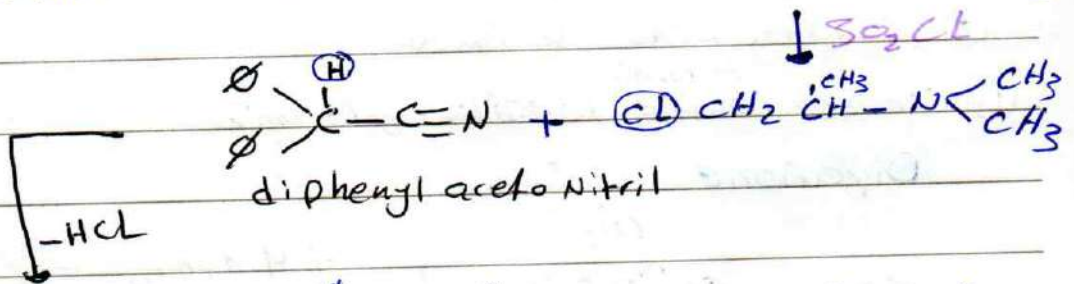 ↓ SO2Cl
Ø Ø (H) C — C≡N + (Cl) CH2 CH(CH3) — N < CH3 CH3
diphenyl aceto Nitril
-HCL